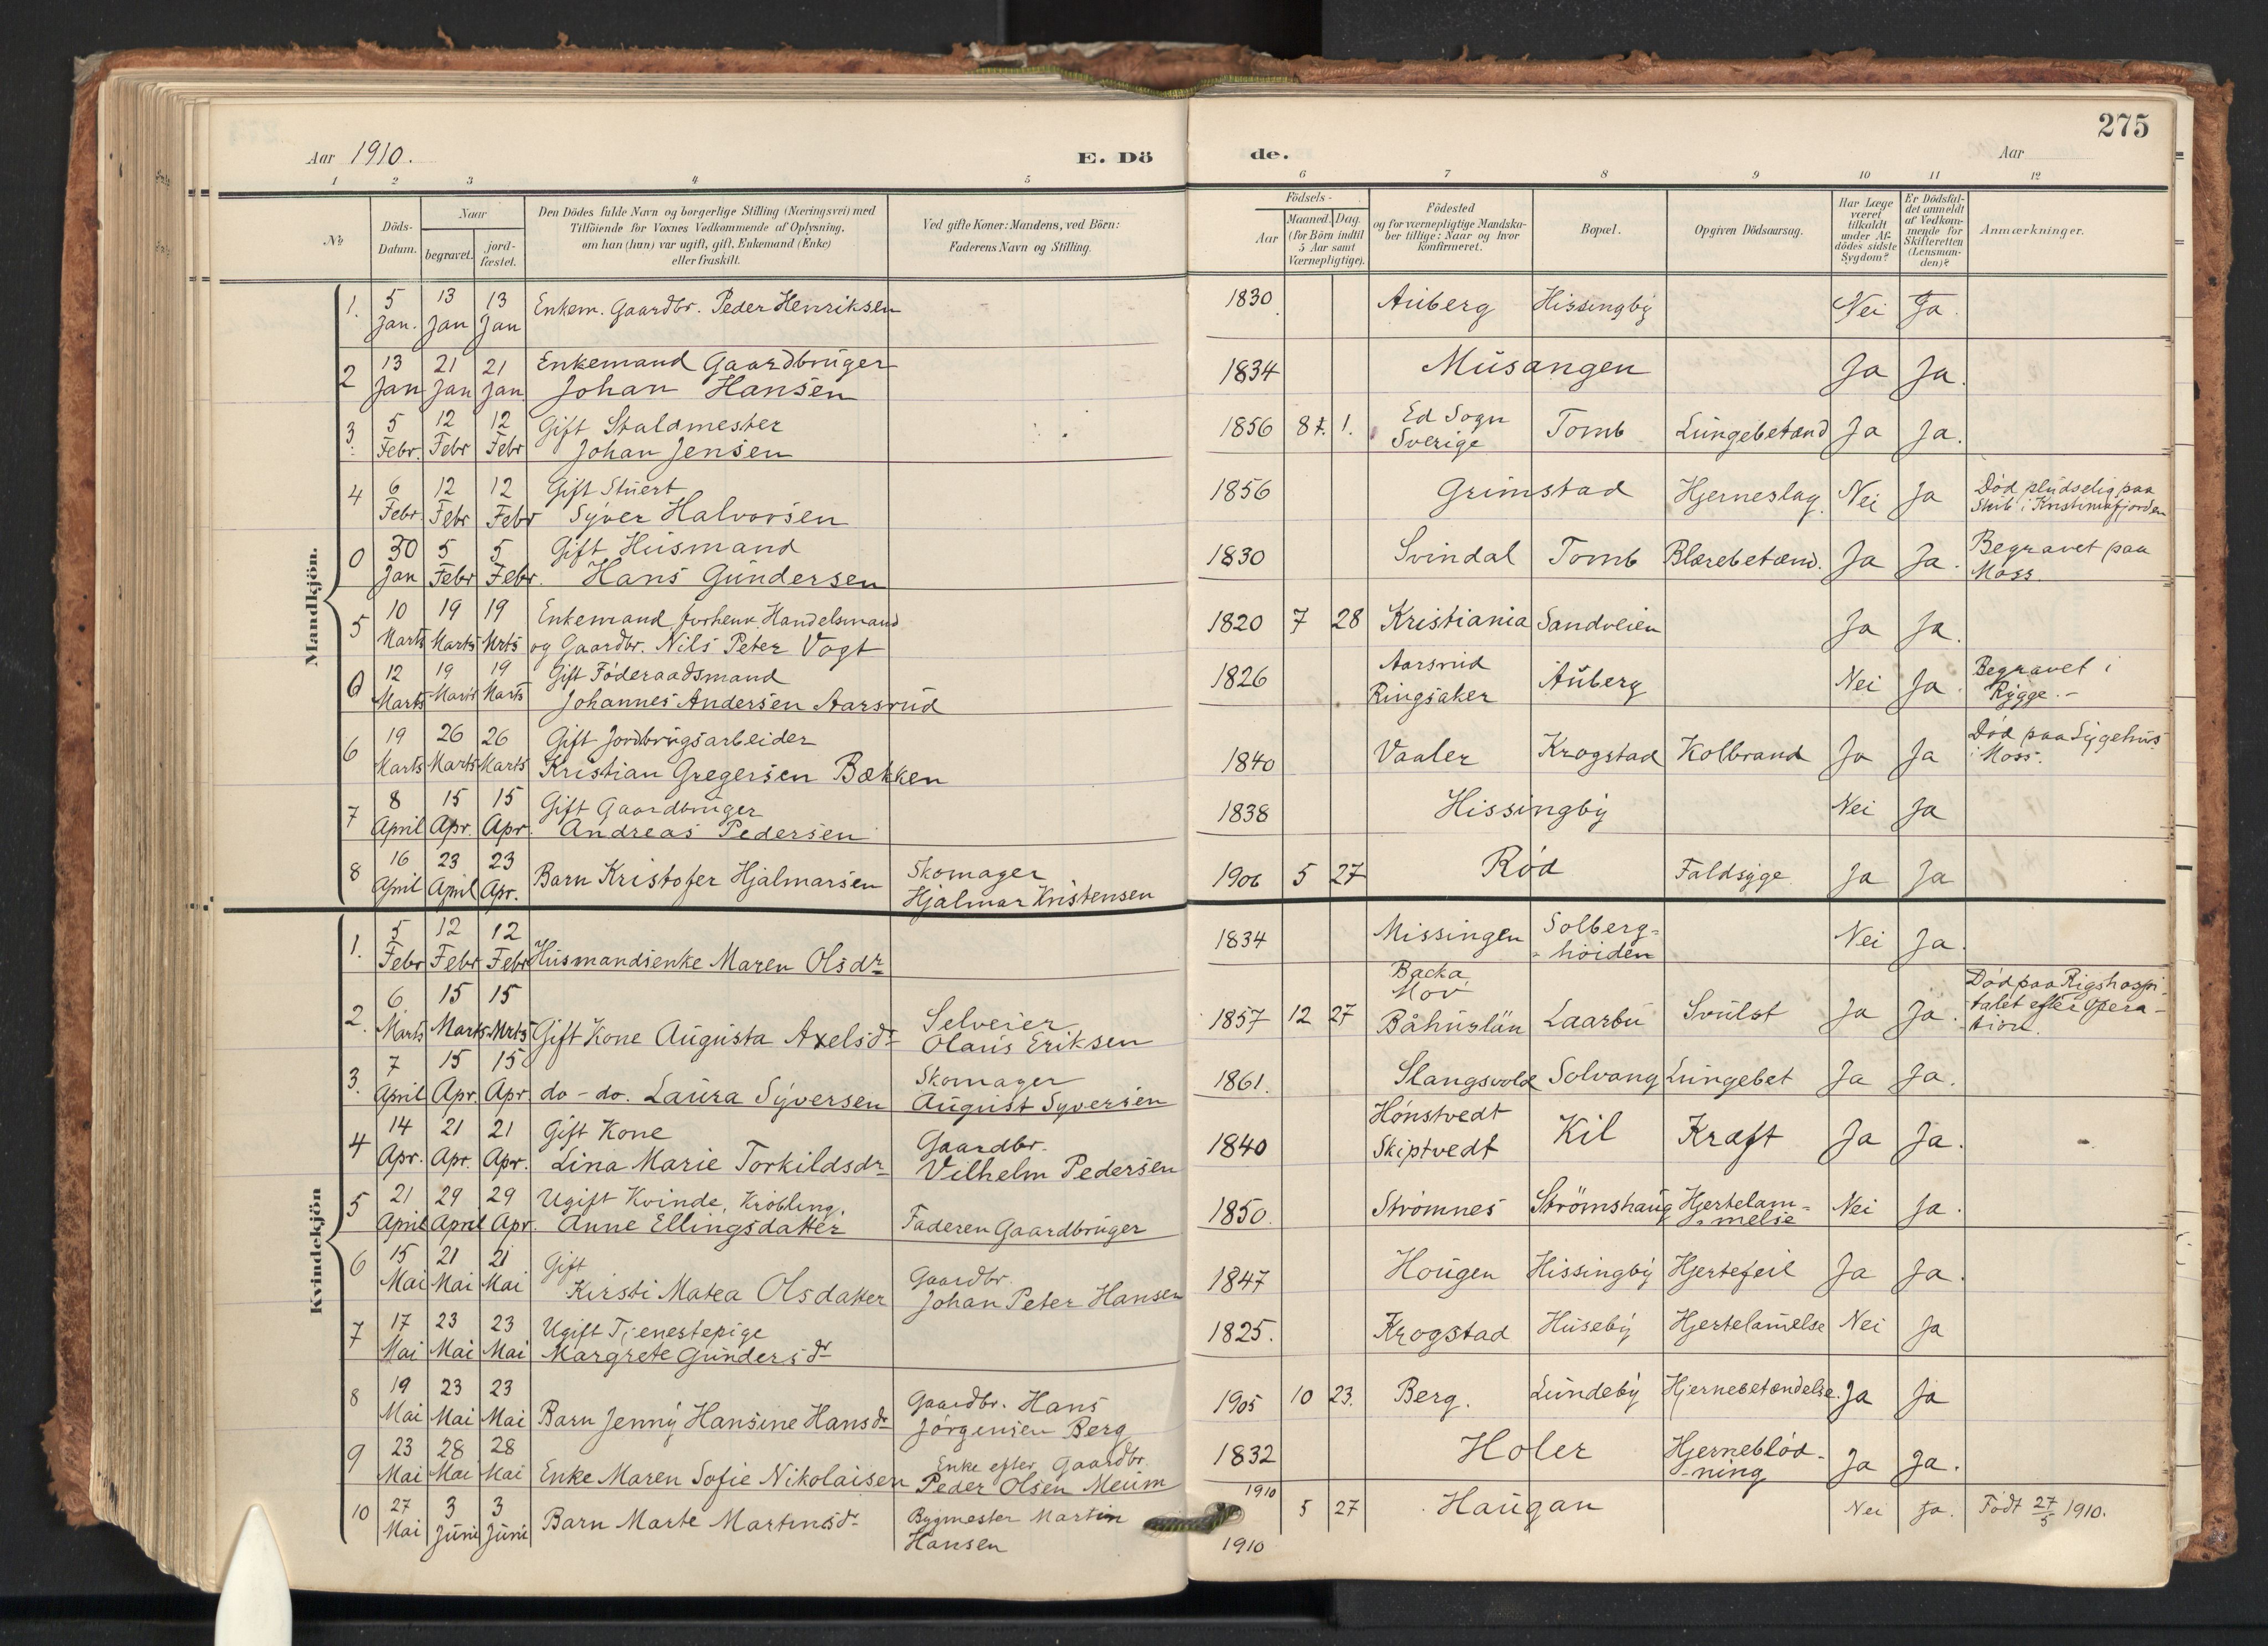 275
Aar 1910.
E. Dö
de.
Aar
1 2 3 4 5 6 7 8 9 10 11 12
No
Döds-
Datum.
Naar
begravet.
jord-
fæstet.
Den Dödes fulde Navn og borgerlige Stilling (Næringsvei) med
Tilföiende for Voxnes Vedkommende af Oplysning,
om han (hun) var ugift, gift, Enkemand (Enke)
eller fraskilt.
Ved gifte Koner: Mandens, ved Börn:
Faderens Navn og Stilling.
Födsels-
Aar
Maaned. Dag.
(for Börn indtil
5 Aar samt
Værnepligtige).
Födested
og for værnepligtige Mandska-
ber tillige: Naar og hvor
konfirmeret.
Bopæl.
Opgiven Dödsaarsag.
Har Læge
været
tilkaldt
under Af-
dödes sidste
Sygdom?
Er Dödsfal-
det anmeldt
af Vedkom-
mende for
Skifteretten
(Lensman-
den)?
Anmærkninger.
Mandkjön.
1. 5 Jan. 13 Jan 13 Jan Enkem. Gaardbr. Peder Henriksen 1830 Aüberg Hissingby Nei Ja.
2 13 Jan 21 Jan 21 Jan Enkemand Gaardbrüger
Johan Hansen 1834 Müsangen Ja Ja.
3. 5 Febr. 12 Febr 12 Febr Gift Staldmester
Johan Jensen 1856 8 1. Ed Sogn
Sverige Tomb Lüngebetænd Ja Ja.
4 6 Febr. 12 Febr 12 Febr Gift Stüert
Syver Halvorsen 1856 Grimstad Hjerneslag. Nei Ja Död plüdselig paa
Skib i Kristianiafjorden
0 30 Jan 5 Febr 5 Febr. Gift Hüsmand
Hans Gündersen 1830 Svindal Tomb Blærebetænd. Ja Ja. Begravet paa
Moss.
5 10 Marts 19 Marts 19 Mrts Enkemand, forhenv. Handelsmand
og Gaardbr. Nils Peter Vogt 1820 7 28 Kristiania Sandveien Ja Ja.
0 12 Marts 19 Marts 19 Marts Gift Föderaadsmand
Johannes Andersen Aarsrüd 1826 Aarsrüd
Ringsaker Aüberg Nei Ja Begravet i
Rygge.-
6 19 Marts 26 Marts 26 Marts Gift Jordbrügsarbeider
Kristian Gregersen Bækken 1840 Vaaler Krogstad Kolbrand Ja Ja Död paa Sygehüs
i Moss.
7 8 April 15 Apr. 15 Apr. Gift Gaardbrüger
Andreas Pedersen 1838 Hissingby Nei Ja
8 16 April 23 April 23 Apr. Barn Kristofer Hjalmarsen Skomager
Hjalmar Kristensen 1906 5 27 Röd Faldsyge Ja Ja
Kvindekjön
1. 5 Febr 12 Febr 12 Febr Hüsmandsenke Maren Olsdr 1834 Missingen Solberg-
höiden Nei Ja.
2. 6 Marts 15 Marts 15 Mrts Gift Kone Aügüsta Axelsdr Selveier
Olaüs Eriksen 1857 12 27 Backa
Båhüslän Laarbü Svülst Ja Ja. Död paa Rigshospi-
talet efter Opera-
tion.
3. 7 April 15 Apr. 15 Apr do - do. Laüra Syversen Skomager
Aügüst Syversen 1861. Slangsvold Solvang Lüngebet Ja Ja.
4 14 Apr. 21 Apr. 21 Apr. Gift Kone
Lina Marie Torkildsdr Gaardbr.
Vilhelm Pedersen 1840 Hönstvedt
Skiptvedt Kil Kræft Ja Ja.
5 21 April 29 April 29 Apr. Ugift Kvinde, Kröbling,
Anne Ellingsdatter Faderen Gaardbrüger 1850. Strömnes Strömshaüg Hjertelam-
melse Nei Ja.
6 15 Mai 21 Mai 21 Mai Gift
Kirsti Matea Olsdatter Gaardbr.
Johan Peter Hansen 1847 Hoügen Hissingby Hjertefeil Ja Ja.
7 17 Mai 23 Mai 23 Mai Ugift Tjenestepige
Margrete Gündersdr 1825. Krogstad Hüseby Hjertelamelse Nei Ja
8 19 Mai 23 Mai 23 Mai Barn Jenny Hansine Hansdr Gaardbr. Hans
Jörgensen Berg 1905 10 23. Berg. Lündeby Hjernebetændelse. Ja Ja
9 23 Mai 28 Mai 28 Mai Enke Maren Sofie Nikolaisen Enke efter Gaardbr.
Peder Olsen Meüm 1832 Holer Hjerneblöd-
ning Ja Ja.
10 27 Mai 3 Jüni 3 Jüni Barn Marte Martinsdr Bygmester Martin
Hansen 1910 5 27 Haügan Nei Ja. Födt 27/5 1910.
1910